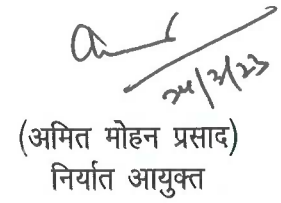 24/3/23
(अमित मोहन प्रसाद)
निर्यात आयुक्त